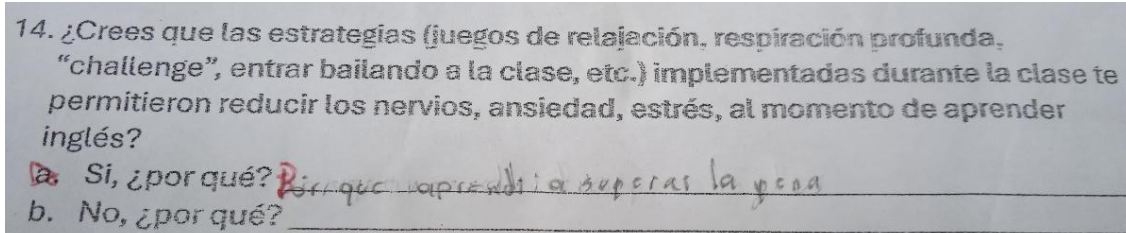 14. ¿Crees que las estrategias (juegos de relajación, respiración profunda,
"challenge", entrar bailando a la clase, etc.) implementadas durante la clase te
permitieron reducir los nervios, ansiedad, estrés, al momento de aprender
inglés?
a. Si, ¿por qué? Porque aprendi a superar la pena
b. No, ¿por qué?